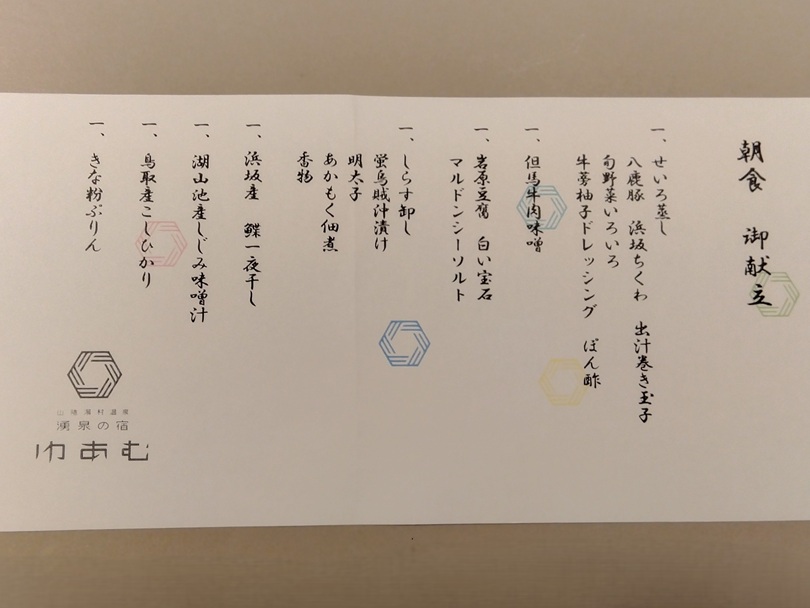 朝食 御献立
一、せいろ蒸し
八鹿豚 浜坂ちくわ 出汁巻き玉子
旬野菜いろいろ
牛蒡柚子ドレッシング ぽん酢
一、但馬牛肉味噌
一、岩原豆腐 白い宝石
マルドンシーソルト
一、しらす卸し
螢烏賊沖漬け
明太子
あかもく佃煮
香物
一、浜坂産 鰈一夜干し
一、湖山池産しじみ味噌汁
一、鳥取産こしひかり
一、きな粉ぷりん
山陰湯村温泉
湧泉の宿
ゆあむ